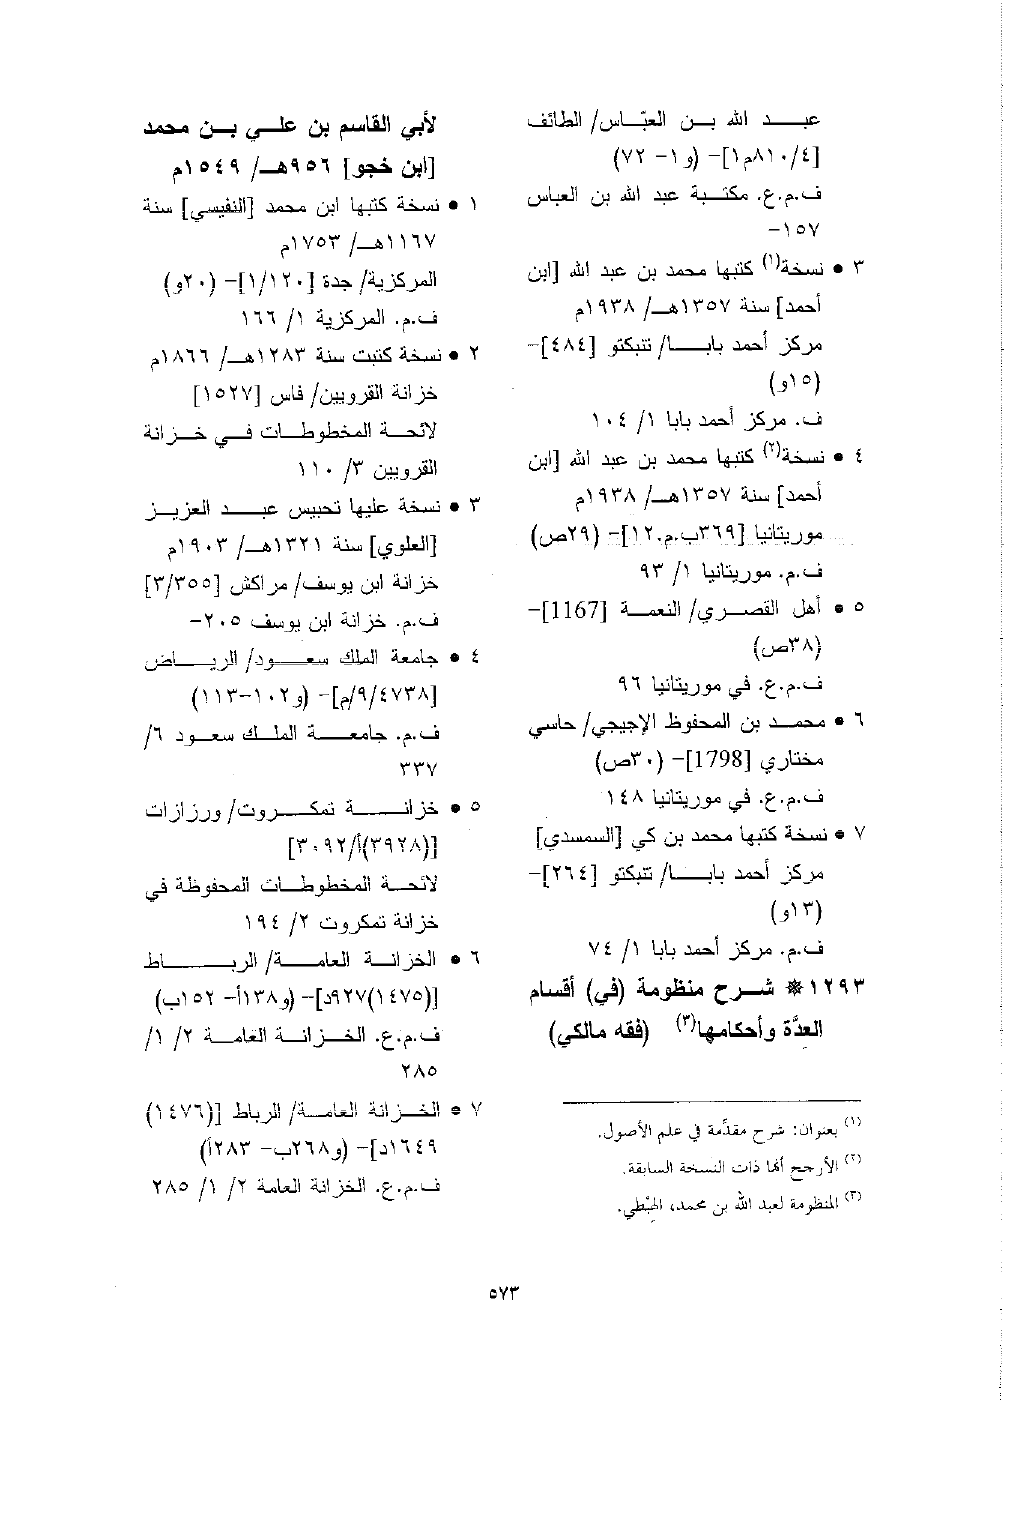 عبد الله بن العبّاس/ الطائف
[٨١٠/٤م١]- (و١- ٧٢)
ف.م.ع. مكتبة عبد الله بن العباس
١٥٧-
٣ • نسخة(١) كتبها محمد بن عبد الله [ابن
أحمد] سنة ١٣٥٧هـ/ ١٩٣٨م
مركز أحمد بابا/ تنبكتو [٤٨٤]-
(١٥و)
ف. مركز أحمد بابا ١/ ١٠٤
٤ • نسخة(٢) كتبها محمد بن عبد الله [ابن
أحمد] سنة ١٣٥٧هـ/ ١٩٣٨م
موريتانيا [٣٦٩ب.م.١٢]- (٢٩ص)
ف.م. موريتانيا ١/ ٩٣
٥ • أهل القصري/ النعمة [1167]-
(٣٨ص)
ف.م.ع. في موريتانيا ٩٦
٦ • محمد بن المحفوظ الإجيجي/ حاسي
مختاري [1798]- (٣٠ص)
ف.م.ع. في موريتانيا ١٤٨
٧ • نسخة كتبها محمد بن كي [السمسدي]
مركز أحمد بابا/ تنبكتو [٢٦٤]-
(١٣و)
ف.م. مركز أحمد بابا ١/ ٧٤
١٢٩٣ * شرح منظومة (في) أقسام
العدَّة وأحكامها(٣) (فقه مالكي)
(١) بعنوان: شرح مقدَّمة في علم الأصول.
(٢) الأرجح أنها ذات النسخة السابقة.
(٣) المنظومة لعبد الله بن محمد، الهَبْطي.
لأبي القاسم بن علي بن محمد
[ابن خجو] ٩٥٦هـ/ ١٥٤٩م
١ • نسخة كتبها ابن محمد [النفيسي] سنة
١١٦٧هـ/ ١٧٥٣م
المركزية/ جدة [١/١٢٠]- (٢٠و)
ف.م. المركزية ١/ ١٦٦
٢ • نسخة كتبت سنة ١٢٨٣هـ/ ١٨٦٦م
خزانة القرويين/ فاس [١٥٢٧]
لائحة المخطوطات في خزانة
القرويين ٣/ ١١٠
٣ • نسخة عليها تحبيس عبد العزيز
[العلوي] سنة ١٣٢١هـ/ ١٩٠٣م
خزانة ابن يوسف/ مراكش [٣/٣٥٥]
ف.م. خزانة ابن يوسف ٢٠٥-
٤ • جامعة الملك سعود/ الرياض
[٩/٤٧٣٨/م]- (و١٠٢-١١٣)
ف.م. جامعة الملك سعود ٦/
٣٣٧
٥ • خزانة تمكروت/ ورزازات
[(٣٩٢٨)أ/٣٠٩٢]
لائحة المخطوطات المحفوظة في
خزانة تمكروت ٢/ ١٩٤
٦ • الخزانة العامة/ الرباط
[(١٤٧٥)٩٢٧د]- (و١٣٨أ- ١٥٢ب)
ف.م.ع. الخزانة العامة ٢/ ١/
٢٨٥
٧ • الخزانة العامة/ الرباط [(١٤٧٦)
١٦٤٩د]- (و٢٦٨ب- ٢٨٣أ)
ف.م.ع. الخزانة العامة ٢/ ١/ ٢٨٥
٥٧٣